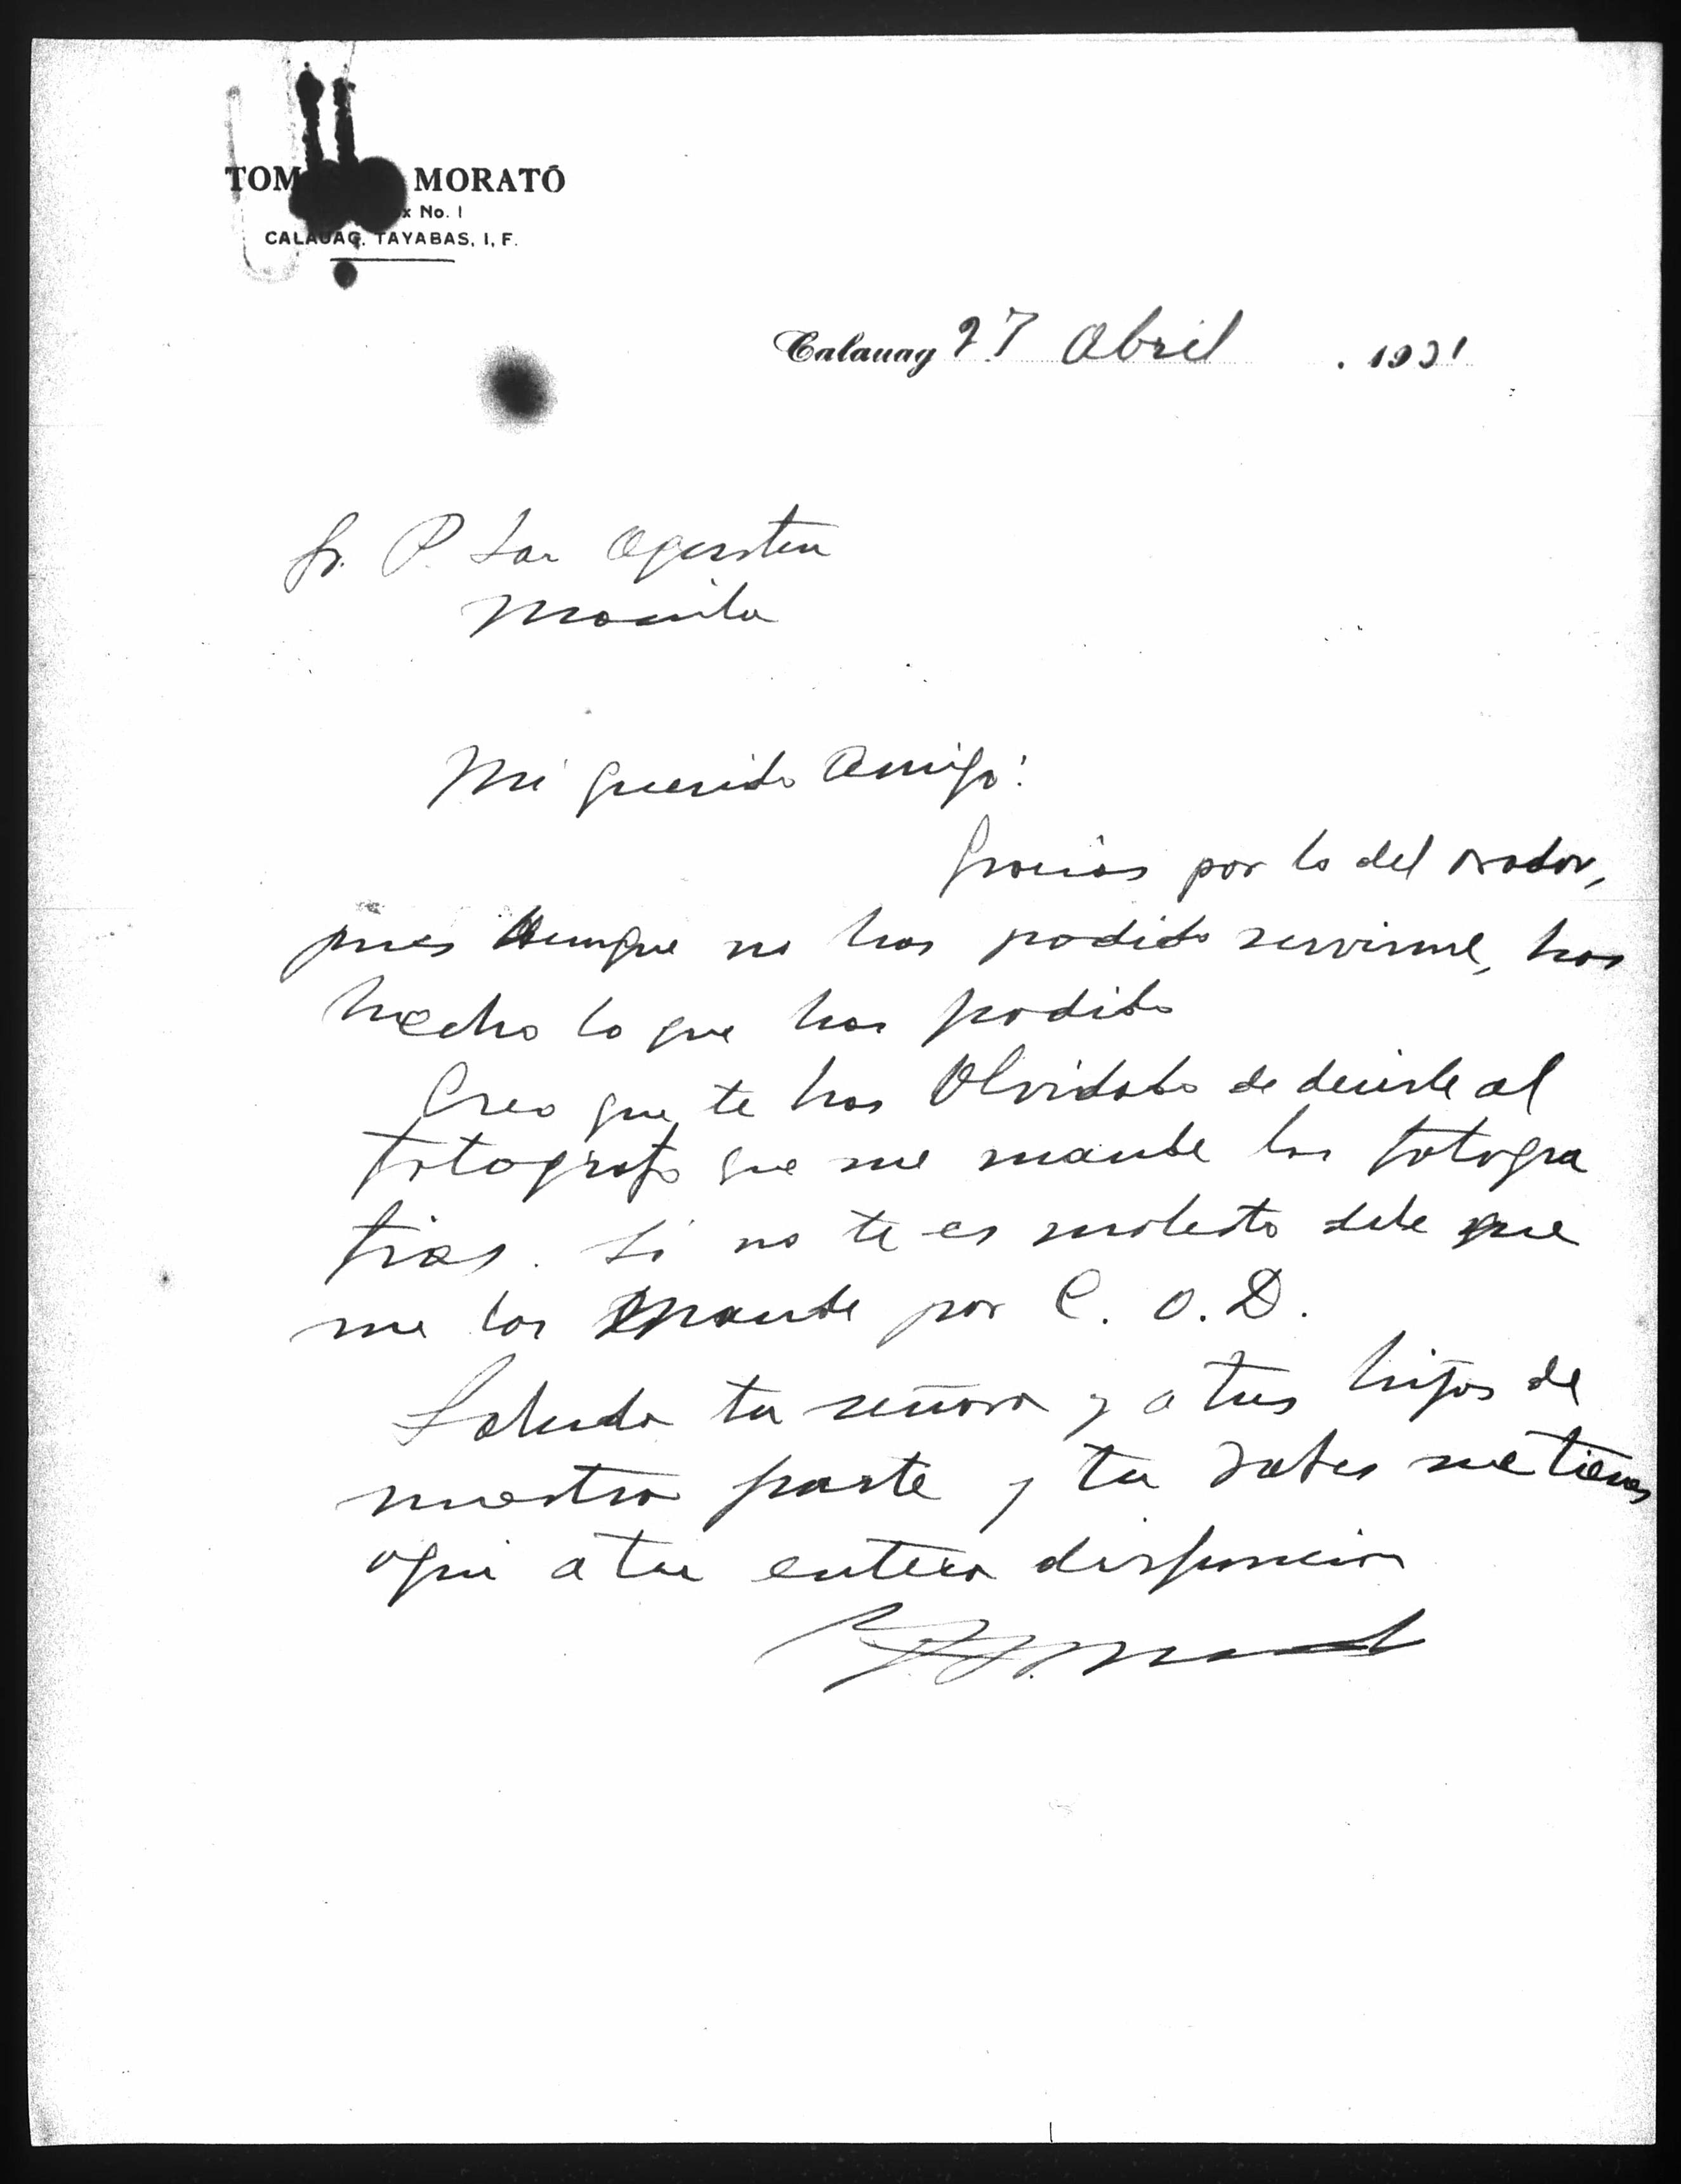 TOM MORATÓ
x No. 1
CALAUAG, TAYABAS, I, F.
Calauag 27 Abril . 1931
Sr. P. San Agustin
Manila
Mi querido Amigo:
Gracias por lo del orador,
pues Aunque no has podido servirme, has
hecho lo que has podido
Creo que te has Olvidado de decirle al
fotografo que me mande las fotogra
fias. Si no te es molesto dile que
me las Mande por C. O. D.
Saluda tu señora y a tus hijos de
nuestra parte y tu sabes me tienes
aqui a tu entera disposicion